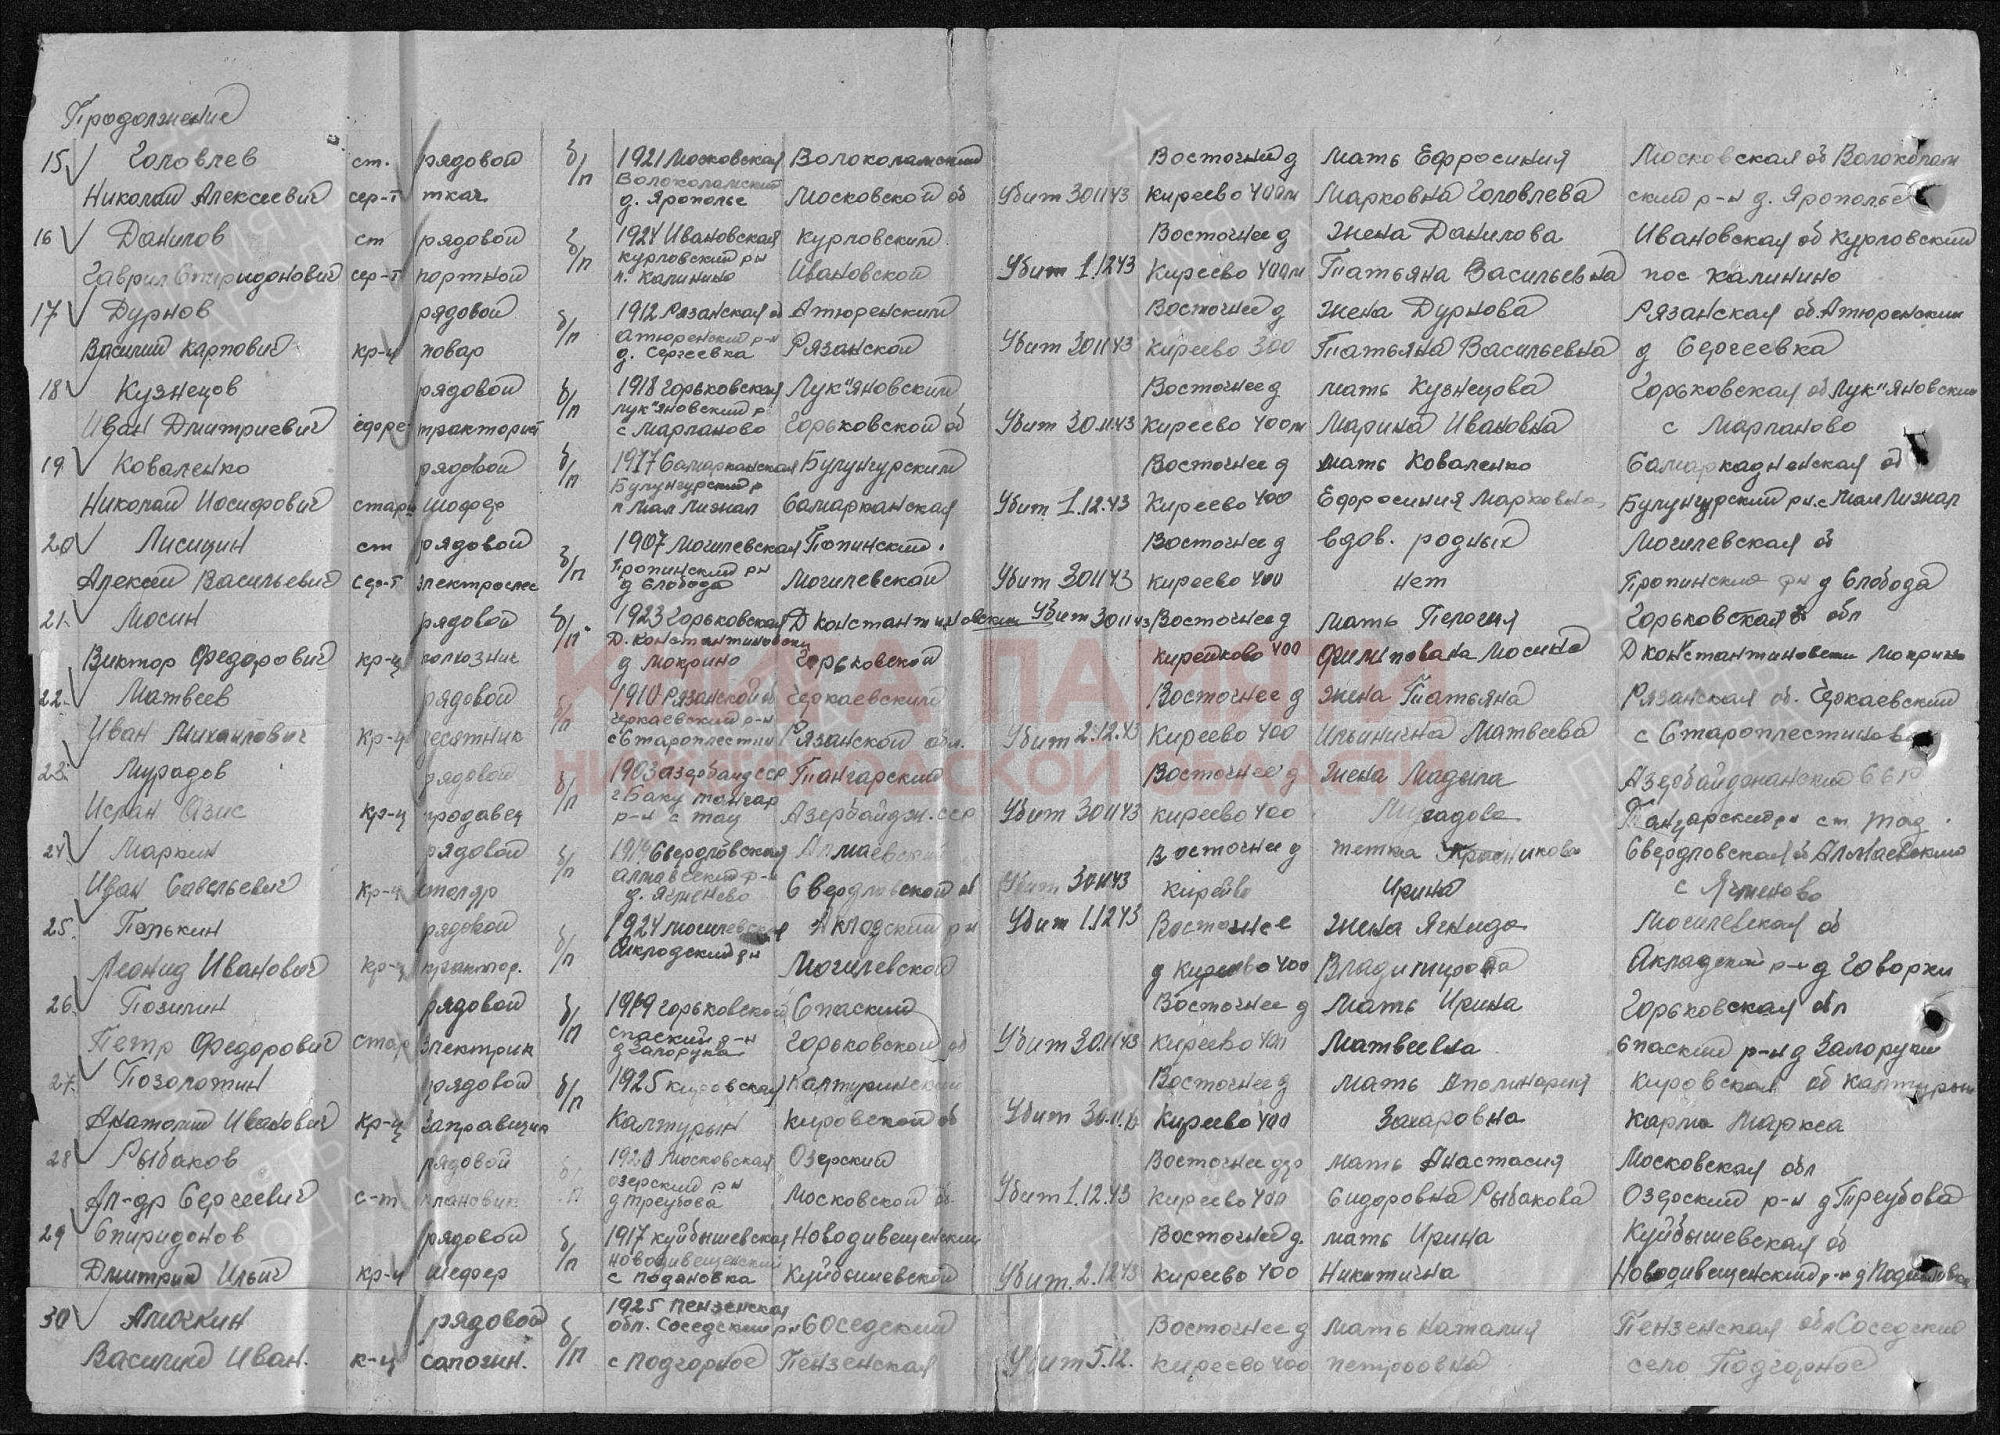 Продолжение
15 Головлев ст. рядовой б/п 1921 Московская Волоколамский Восточней д Мать Ефросиния Московская об Волоколам
Волоколамский
Николай Алексеевич сер-т ткач д. Ярополье Московской об Убит 30.11.43 Киреево 400м Марковна Головлева ский р-н д. Ярополье
16 Данилов ст рядовой б/п 1924 Ивановская Курловский Восточнее д Жена Данилова Ивановская об Курловский
Курловский рн
Гаврил Спиридонович сер-т портной п. Калинино Ивановской Убит 1.12.43 Киреево 400м Татьяна Васильевна пос Калинино
17 Дурнов рядовой б/п 1912 Рязанская об Атюренский Восточнее д Жена Дурнова Рязанская об. Атюренский
Атюренский р-н
Василий Карпович кр-ц повар д. Сергеевка Рязанской Убит 30.11.43 Киреево 300 Татьяна Васильевна д Сергеевка
18 Кузнецов рядовой б/п 1918 Горьковская Лук"яновский Восточнее д мать Кузнецова Горьковская об Лук"яновский
Лук"яновский р
Иван Дмитриевич ефре- тракторист с Марпаново Горьковской об Убит 30.11.43 Киреево 400м Марина Ивановна с Марпаново
19 Коваленко рядовой б/п 1917 Самарканская Булунгурский Восточнее д мать Коваленко Самаркадненская об
Булунгурский р
Николай Иосифович старш шофер п Мал Лизнал Самарканская Убит 1.12.43 Киреево 400 Ефросиния Марковна, Булунгурский рн. с Мал Лизнал
20 Лисицин ст рядовой б/п 1907 Могилевская Пропинский Восточнее д вдов. родных Могилевская об
Пропинский рн
Алексей Васильевич сер-т электрослес д Слобода Могилевской Убит 30.11.43 Киреево 400 нет Пропинский рн д Слобода
21. Мосин рядовой б/п. 1923 Горьковская Д Константиновский Убит 30.11.43 Восточнее д мать Пелогия Горьковская обл
Д. Константиновский
Виктор Федорович кр-ц д Мокрино Горьковской Киреиково 400 Филипована Мосина Д Константиновский Мокрино
22. Матвеев рядовой б/п 1910 Рязанской об Чернаевский Восточнее д жена Татьяна Рязанская об. Чернаевский
Чернаевский р-н
Иван Михаилович кр-ц десятник с Староплестни Рязанской обл. Убит 2.12.43 Киреево 400 Ильинична Матвеева с Староплестиново
23. Мурадов рядовой б/п 1903 Азербайдсср Тангарский Восточнее д Жена Мадыла Азербайджанский ССР
г Баку Тангар
Исран Азис кр-ц продавец р-н с тац Азербайдж. сср Убит 30.11.43 Киреево 400 Мурадова Тангарский рн ст тад.
24 Маркин рядовой б/п Свердловская Алмаевский Восточнее д тетка Свердловская об Алмаевский
Алмаевский р-н
Иван Савельевич кр-ц столяр д. Ячменево Свердловской об Убит 30.11.43 Киреево Ирина с Ячменово
25. Полькин рядовой б/п 1924 Могилевская Аклодский рн Убит 1.12.43 Восточнее жена Могилевская об
Аклодский рн
Леонид Иванович кр-ц трактор. Могилевской д Киреево 400 Владимировна Акладский р-н д Говорки
26. Позилин рядовой б/п 1919 Горьковской Спаский Восточнее д Мать Ирина Горьковская обл
Спаский р-н
Петр Федорович стар электрик д Запрудна Горьковской об Убит 30.11.43 Киреево 400 Матвеевна Спаский р-н д
27. Позолотин рядовой б/п 1925 Кировская Калтуринский Восточнее д Мать Аполинария Кировская об Калтурын
Анатолий Иванович кр-ц заправщик Калтурын Кировской об Убит 30.11. Киреево 400 Захаровна Карла Маркса
28 Рыбаков рядовой б/п 1920 Московская Озерский Восточнее д мать Анастасия Московская обл
Озерский рн
Ал-др Сергеевич с-т плановик д Треубова Московской об Убит 1.12.43 Киреево 400 Сидоровна Рыбакова Озерский р-н д Треубова
29 Спиридонов рядовой б/п 1917 Куйбышевская Новодивещенский Восточней д. мать Ирина Куйбышевская об
Новодивещенский
Дмитрий Ильич кр-ц шефер с Подановка Куйбышевской Убит. 2.12.43 Киреево 400 Никитична Новодивещенский р-н д
30 Алючкин рядовой б/п 1925 Пензенская Соседский Восточнее д Мать Наталия Пензенская обл Соседский
обл. Соседский рн
Василий Иван. к-ц сапожн. с Подгорное Пензенская Убит 5.12. Киреево 400 Петроовна село Подгорное
КНИГА ПАМЯТИ
НИЖЕГОРОДСКОЙ ОБЛАСТИ